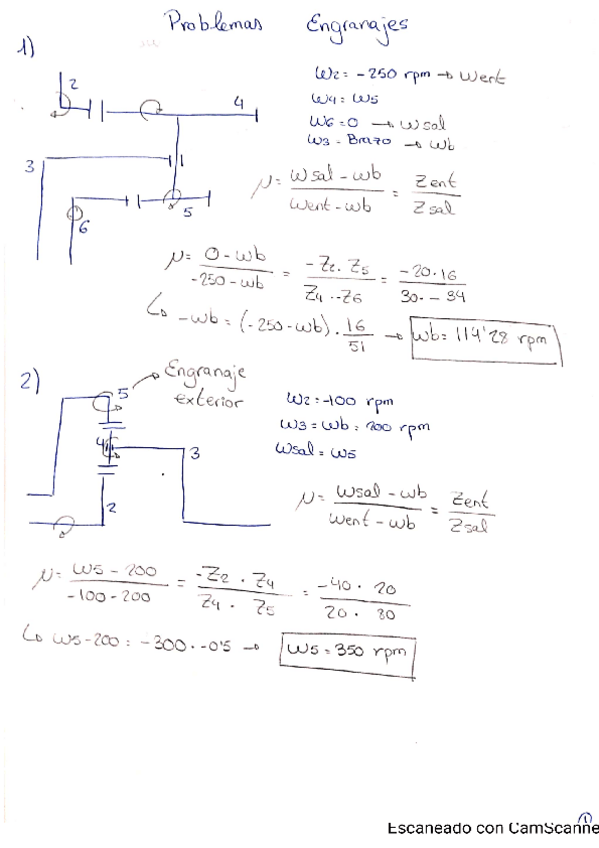 Problemas Engranajes
1)
2
4
3
5
6
ω2 = -250 rpm → ωent
ω4 = ω5
ω6 = 0 → ωsal
ω3 = Brazo → ωb
μ = (ωsal - ωb) / (ωent - ωb) = Zent / Zsal
μ = (0 - ωb) / (-250 - ωb) = (-Z2 · Z5) / (Z4 · -Z6) = (-20 · 16) / (30 · -34)
↳ -ωb = (-250 - ωb) · 16/51 → ωb = 114'28 rpm
2)
5 → Engranaje
exterior
4
3
2
ω2 = -100 rpm
ω3 = ωb = 200 rpm
ωsal = ω5
μ = (ωsal - ωb) / (ωent - ωb) = Zent / Zsal
μ = (ω5 - 200) / (-100 - 200) = (-Z2 · Z4) / (Z4 · Z5) = (-40 · 20) / (20 · 80)
↳ ω5 - 200 = -300 · -0'5 → ω5 = 350 rpm
1
Escaneado con CamScanne